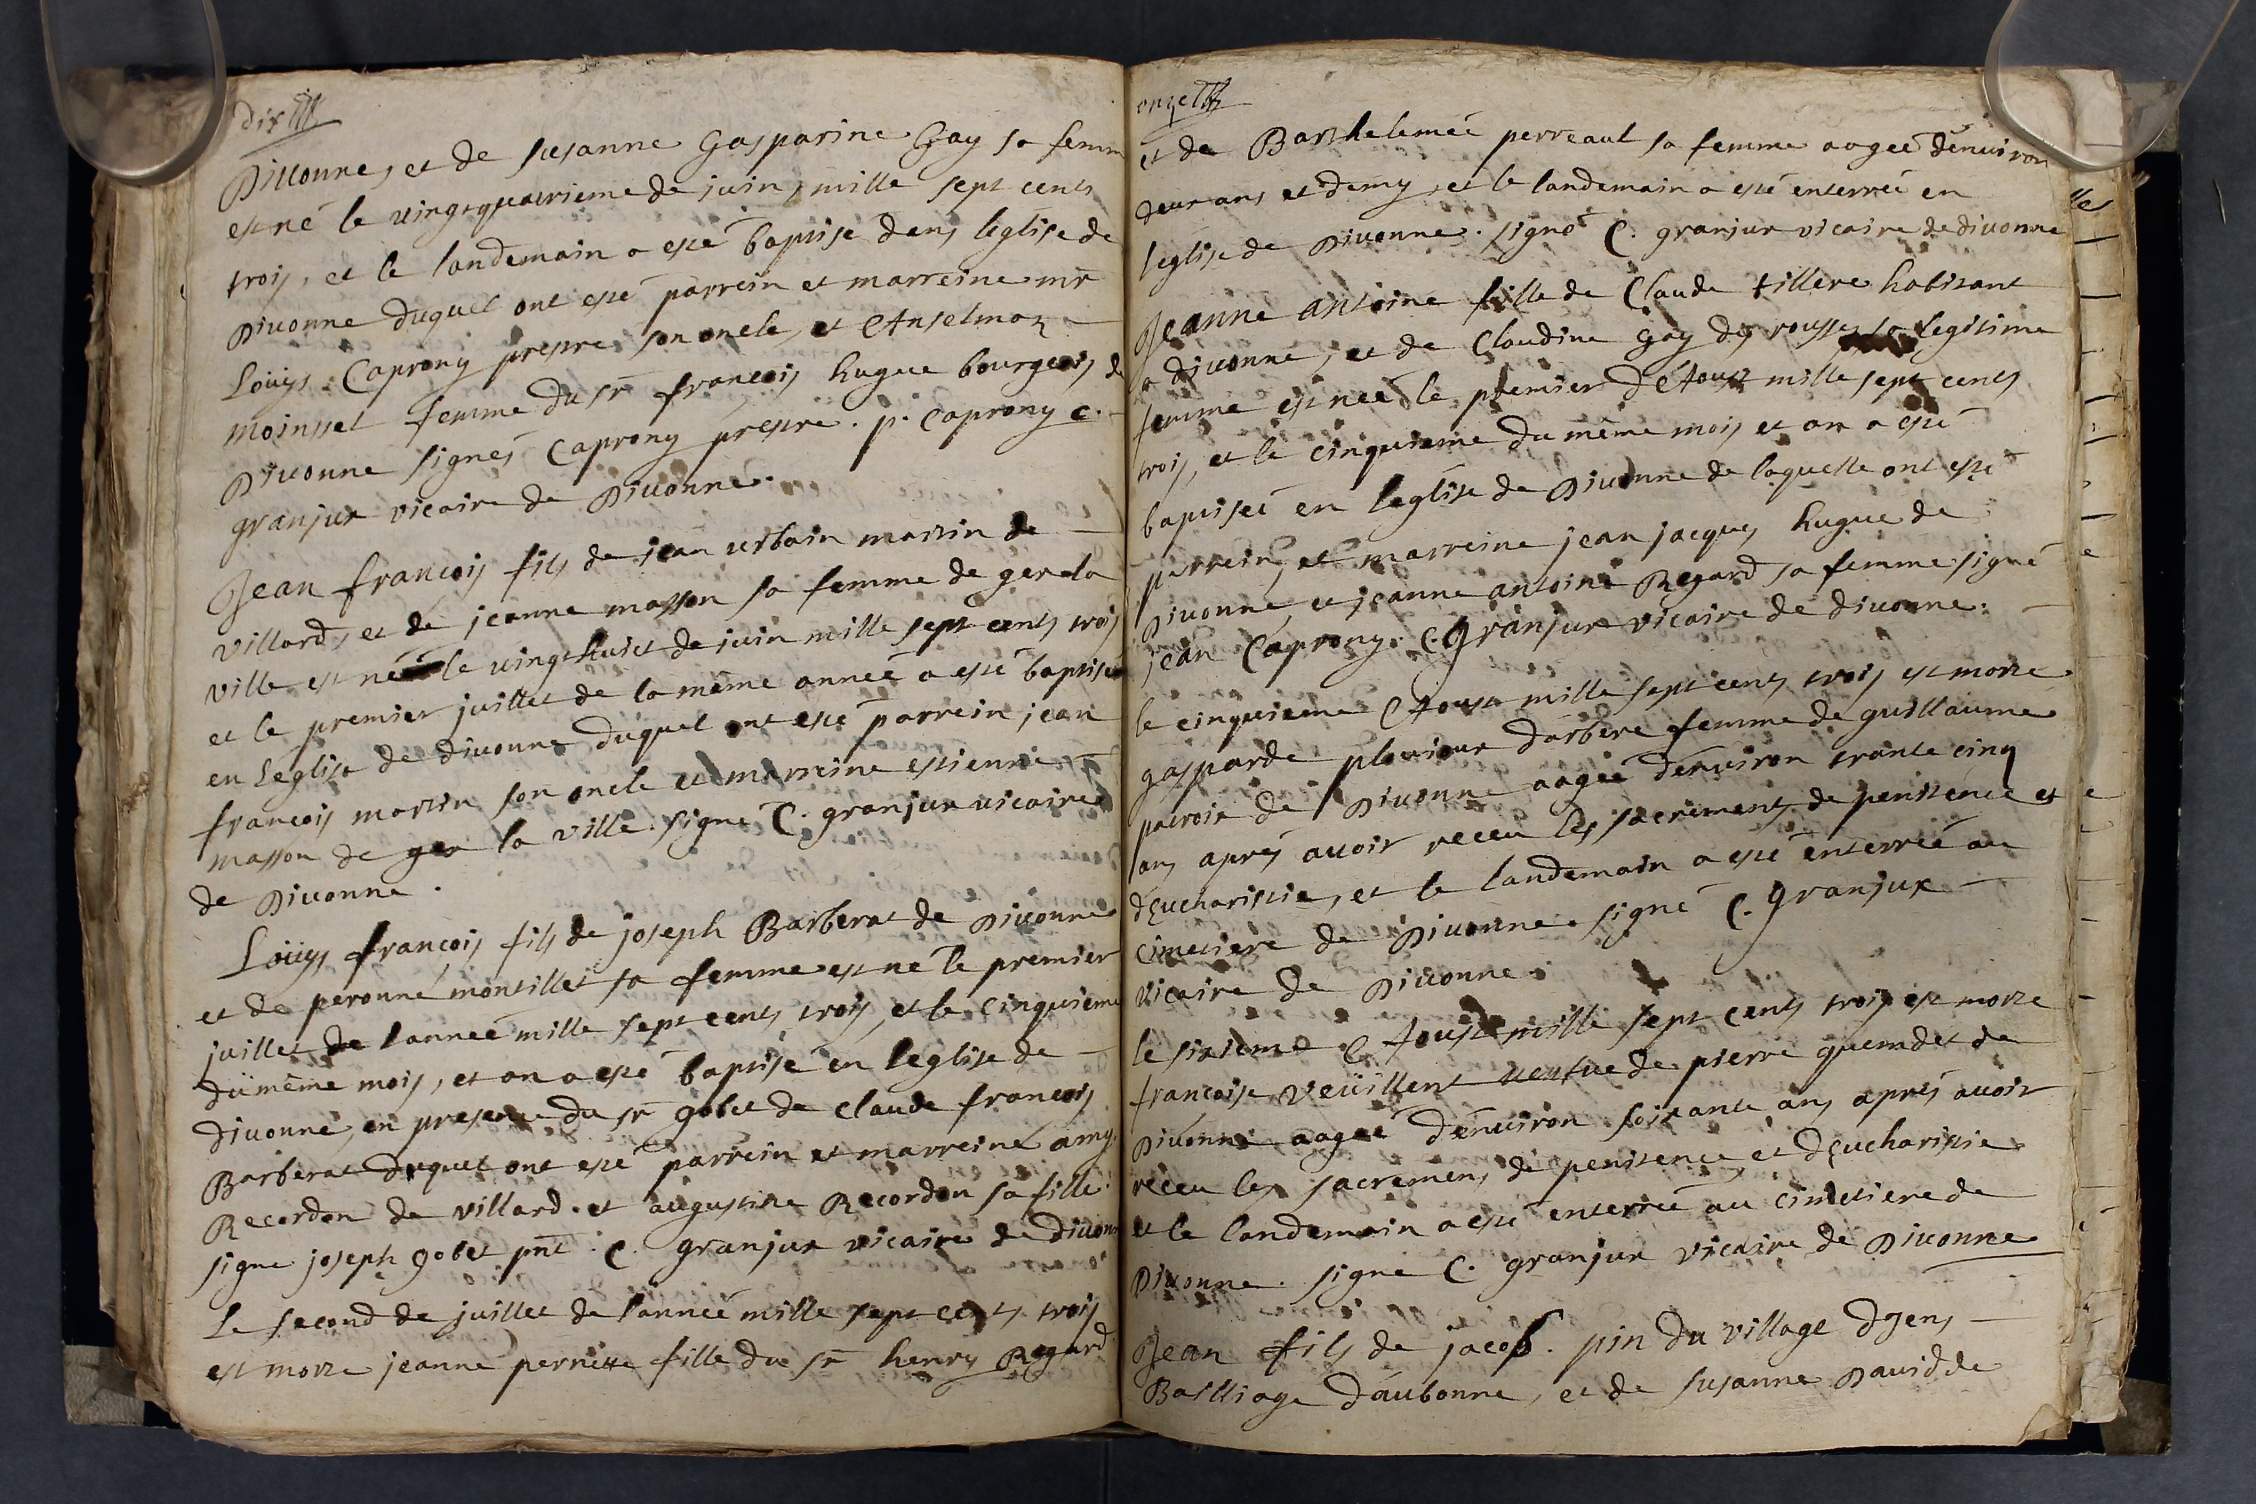 dix
Diuonne, et de susanne Gasparine Gay sa femm
est né le uingtquatrieme de juin, mille sept cents
trois, et le landemain a esté baptisé dans leglise de
Diuonne duquel ont esté parrein et marreine mr
Loüys Caprony prestre son oncle, et Anselmoz
moinsset femme du sr françois hugue bourgeois de
Diuonne signés Caprony prestre. p. Caprony C.
granjux vicaire de Diuonne.
Jean françois fils de jean urbain martin de
villard, et de jeanne masson sa femme de gex la
ville est né le uingthuict de juin mille sept cents trois
et le premier juillet de la méme année a esté baptisé
en Leglise de diuonne duquel ont esté parrein jean
françois martin son oncle et marreine estienne
masson de gex la ville. signé C. granjux uicaire
de Diuonne.
Loüys françois fils de joseph Barberat de Diuonne
et de peronne montillet sa femme est né le premier
juillet de lannée mille sept cents trois, et le Cinquieme
du méme mois, et an a esté baptisé en leglise de
diuonne, en presence du sr gobet de claude françois
Barberat duquel ont esté parrein et marreine amy
Recordon de villard. et augustine Recordon sa fille
signe joseph gobet pnt. C. granjux vicaire de diuonn
Le second de juillet de lanneé mille sept cents trois
est morte jeanne pernette fille du sr henry Regard
onze
et de Barthelemée perreaut sa femme aageé dénuiron
deux ans et demy, et le landemain a esté enterrée en
leglise de Diuonne. signé C. granjux vicaire de diuonne
Jeanne antoine fille de Claude tillere habitant
a diuonne, et de Claudine Gay des rousses sa legitime
femme est neé le premier d'Aoust mille sept cents
trois, et le cinquieme du méme mois et an a esté
baptiseé en leglise de Diuonne de laquelle ont esté
parrein, et marreine jean jacques hugue de
Diuonne, et jeanne antoine Regard sa femme signé
jean Caprony. C. Granjux vicaire de diuonne.
le cinquieme Aoust mille sept cents trois est morte
gasparde plouieux darbere femme de guillaume
pacroix de Diuonne aageé dénuiron trante cinq
ans aprés auoir receu les sacrements de penitence et
dEucharistie, et le landemain a esté enterreé au
cimetiere de Diuonne. signé C. Granjux
vicaire de Diuonne.
le sixieme Aoust mille sept cents trois est morte
françoise veüillent ueufue de pierre quemdet de
Diuonne aageé dénuiron soixante ans aprés auoir
receu les sacremens de penitence et dEucharistie
et le landemain a esté enterreé au cimetiere de
Diuonne. signe C. granjux vicaire de Diuonne
Jean fils de jacob. pin du village dgens
Bailliage daubonne, et de susanne Dauid de